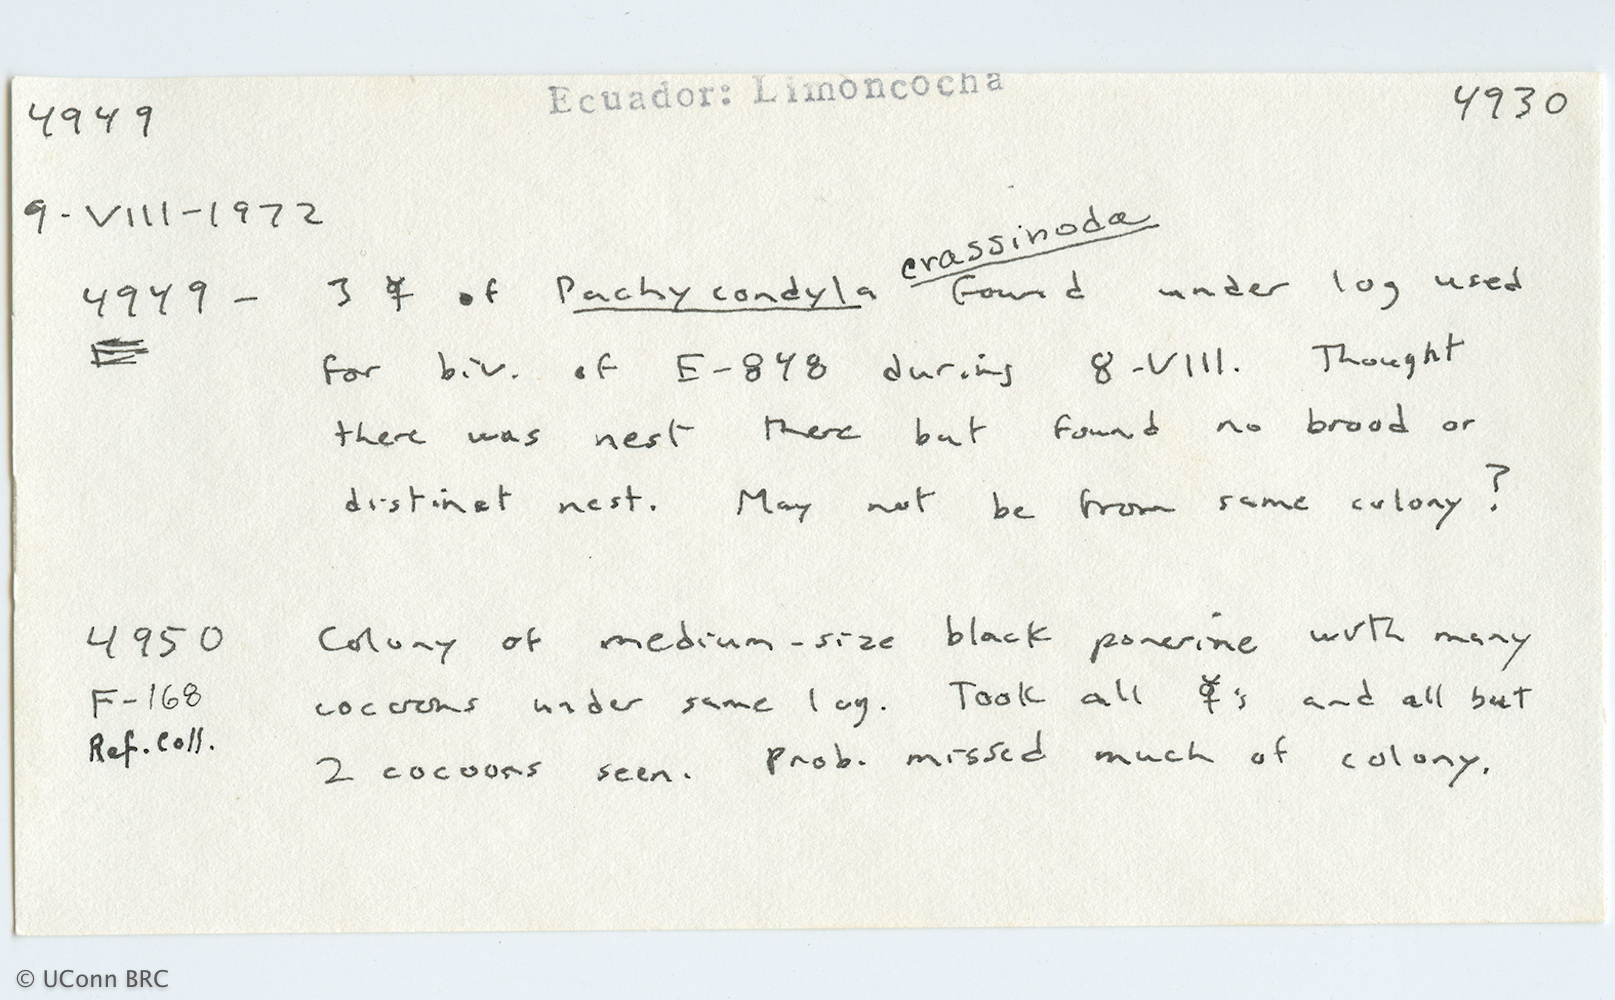 Ecuador: Limoncocha
4949 4930
9-VIII-1972
crassinoda
4949 - 3 ☿ of Pachycondyla found under log used
for biv. of E-848 during 8-VIII. Thought
there was nest there but found no brood or
distinct nest. May not be from same colony?
4950 Colony of medium-size black ponerine with many
F-168 cocoons under same log. Took all ☿'s and all but
Ref. Coll.
2 cocoons seen. Prob. missed much of colony.
© UConn BRC